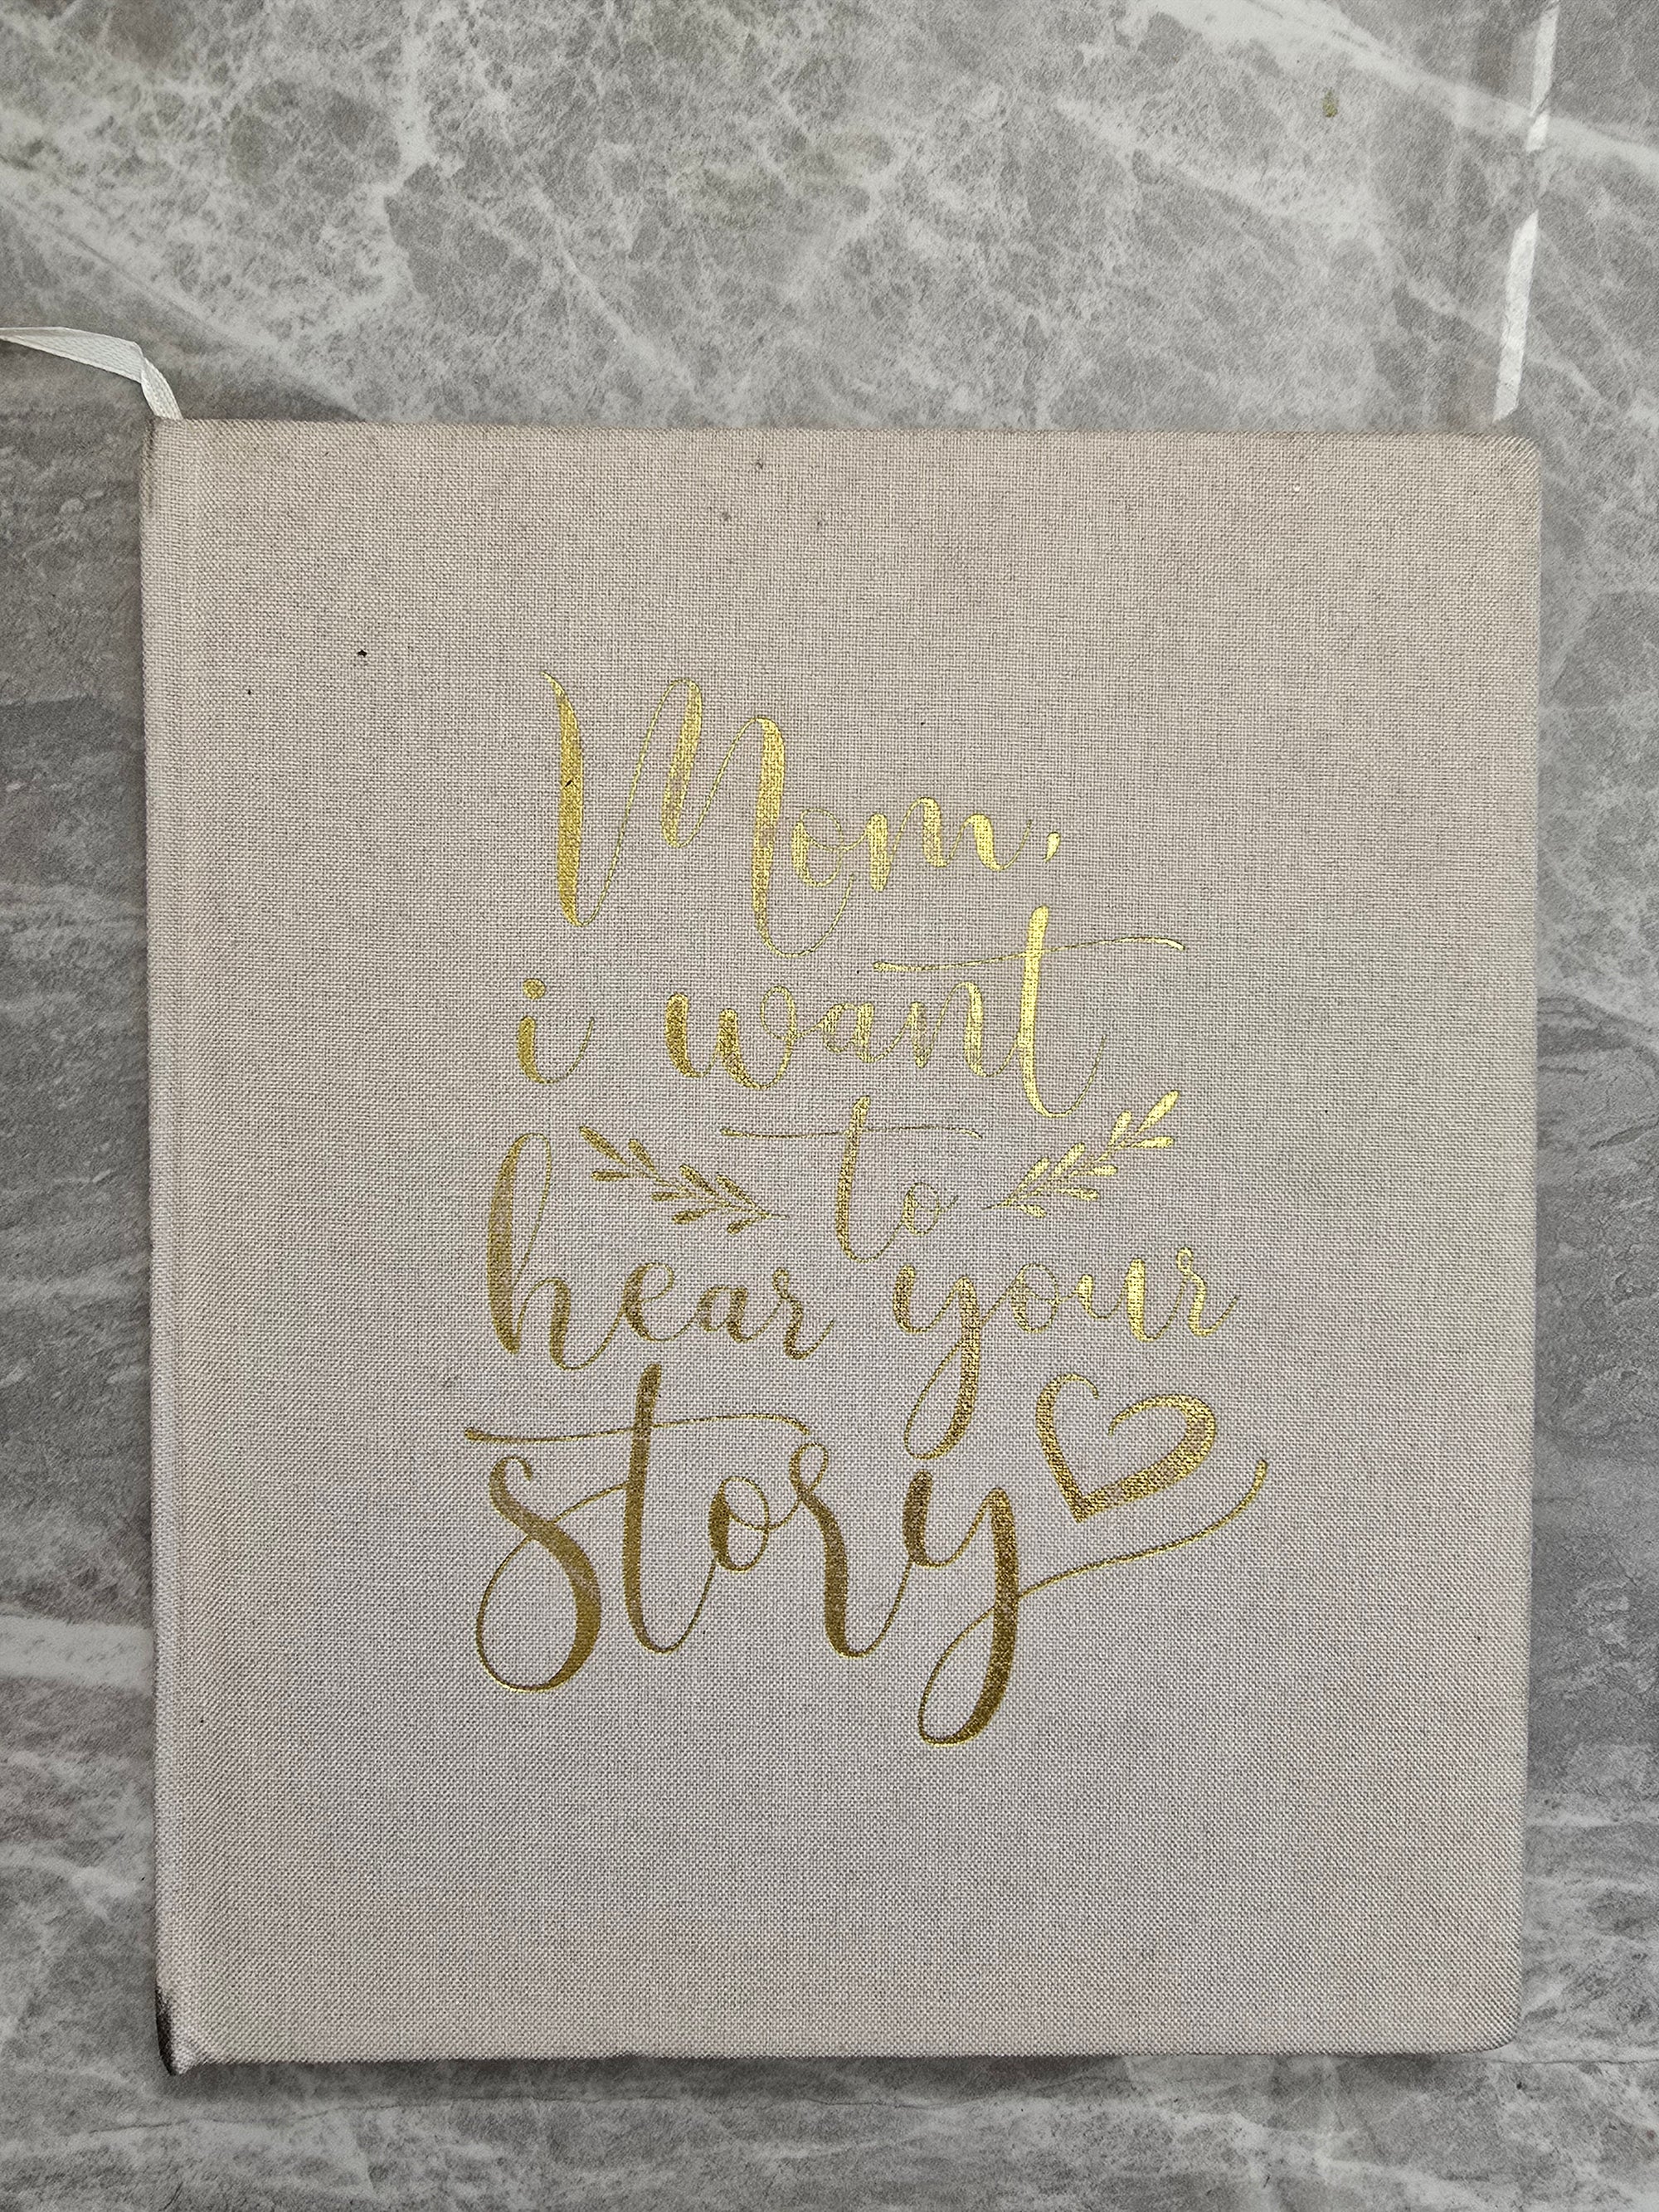 Mom,
i want
to
hear your
story